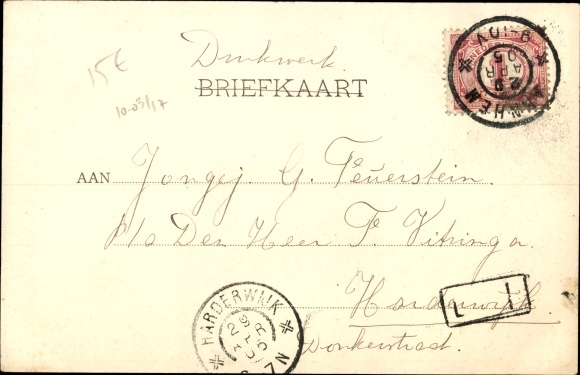 Drukwerk.
15€
BRIEFKAART
10-03/17
AAN Jongej. G. Feuerstein.
p/a Den Heer F. Vitringa
Harderwijk.
Donkerstraat.
ARNHEM
29 APR 05
HARDERWIJK
L I